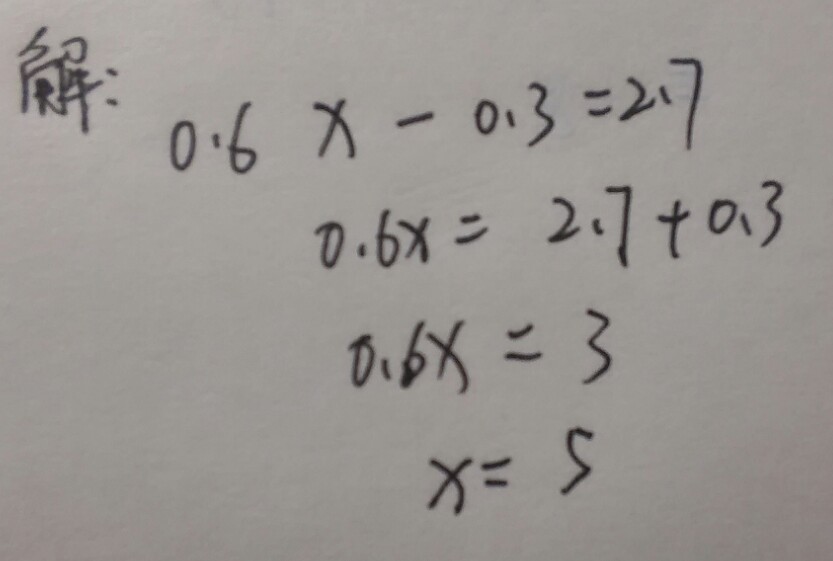 解:
0.6 x - 0.3 = 2.7
0.6x = 2.7 + 0.3
0.6x = 3
x = 5